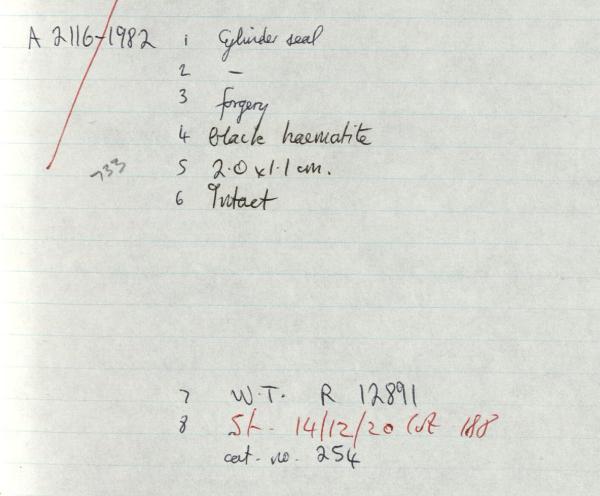 A 2116-1982 1 Cylinder seal
2 –
3 forgery
4 black haematite
733 5 2.0 x 1.1 cm.
6 Intact
7 W.T. R 12891
8 St. 14/12/20 lot 188
cat. no. 254